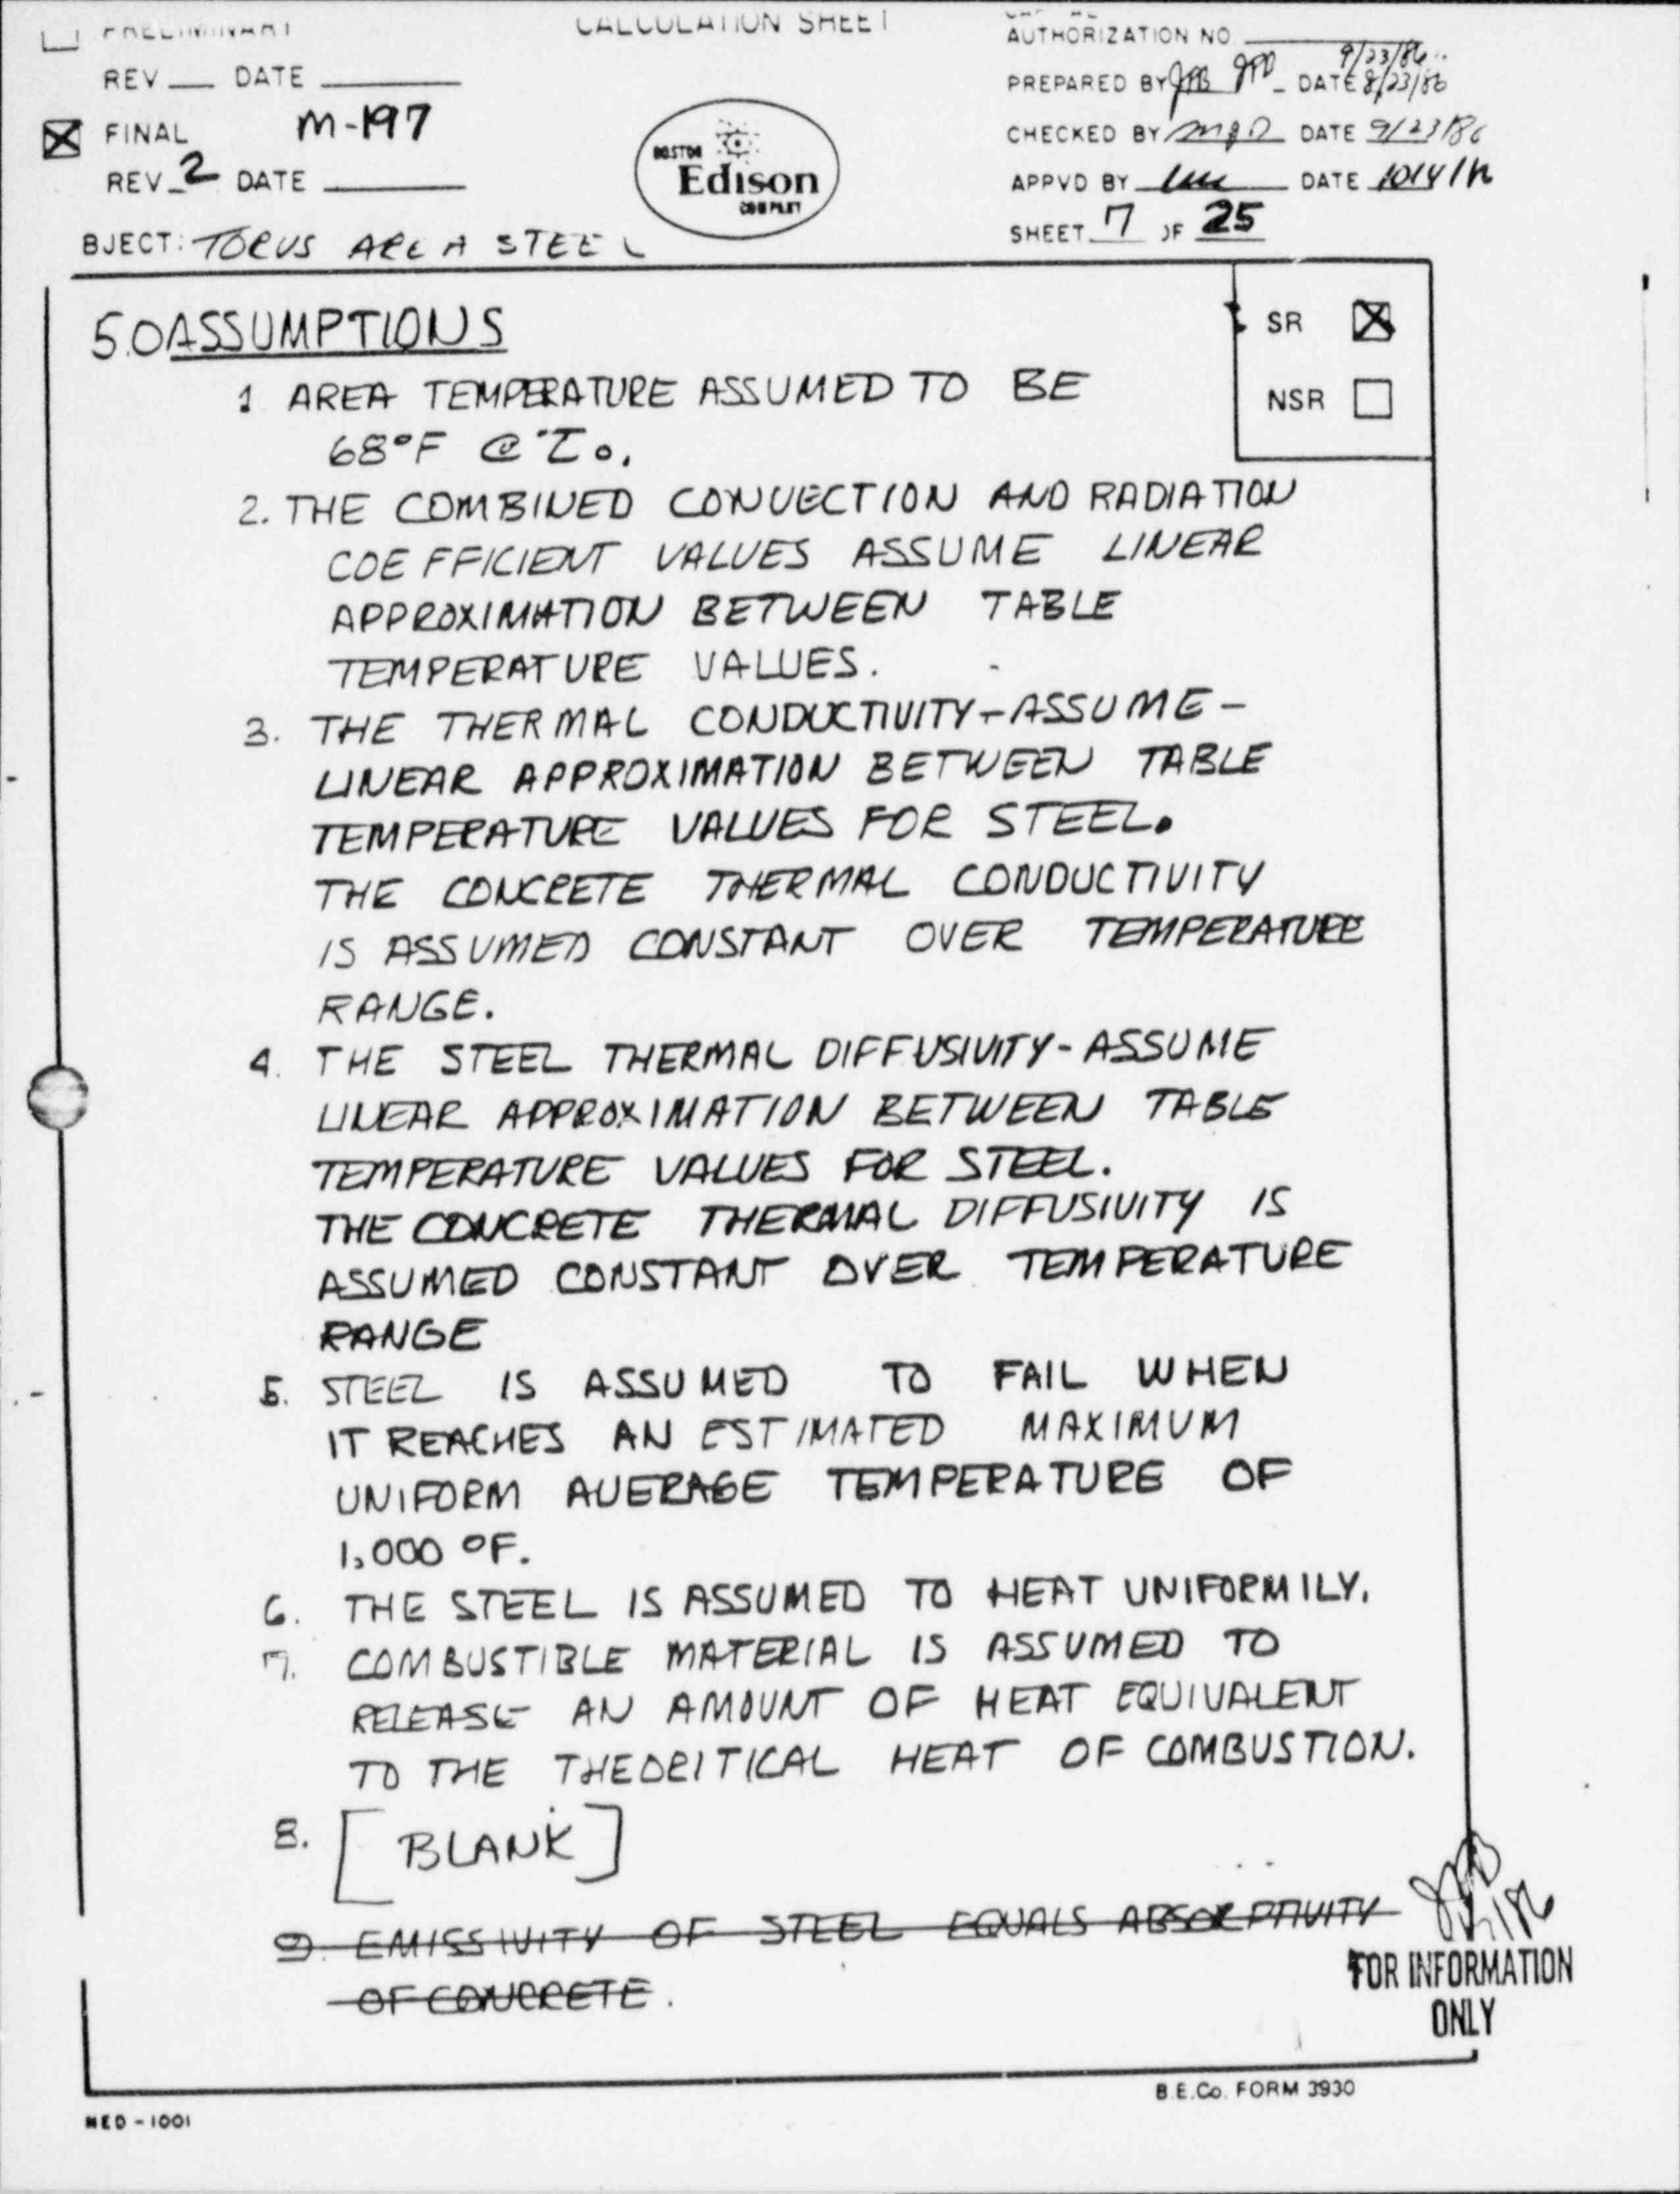 PRELIMINARY
CALCULATION SHEET
AUTHORIZATION NO
REV DATE
9/23/86
PREPARED BY JPB JPD DATE 8/23/86
FINAL M-197
BOSTON
Edison
COMPANY
CHECKED BY DATE 9/23/86
REV 2 DATE
APPVD BY DATE
SHEET 7 OF 25
BJECT: TORUS AREA STEEL
SR
NSR
5.0 ASSUMPTIONS
1 AREA TEMPERATURE ASSUMED TO BE
68°F @ To.
2. THE COMBINED CONVECTION AND RADIATION
COEFFICIENT VALUES ASSUME LINEAR
APPROXIMATION BETWEEN TABLE
TEMPERATURE VALUES.
3. THE THERMAL CONDUCTIVITY-ASSUME-
LINEAR APPROXIMATION BETWEEN TABLE
TEMPERATURE VALUES FOR STEEL.
THE CONCRETE THERMAL CONDUCTIVITY
IS ASSUMED CONSTANT OVER TEMPERATURE
RANGE.
4. THE STEEL THERMAL DIFFUSIVITY-ASSUME
LINEAR APPROXIMATION BETWEEN TABLE
TEMPERATURE VALUES FOR STEEL.
THE CONCRETE THERMAL DIFFUSIVITY IS
ASSUMED CONSTANT OVER TEMPERATURE
RANGE
5. STEEL IS ASSUMED TO FAIL WHEN
IT REACHES AN ESTIMATED MAXIMUM
UNIFORM AVERAGE TEMPERATURE OF
1,000 °F.
6. THE STEEL IS ASSUMED TO HEAT UNIFORMILY.
7. COMBUSTIBLE MATERIAL IS ASSUMED TO
RELEASE AN AMOUNT OF HEAT EQUIVALENT
TO THE THEORITICAL HEAT OF COMBUSTION.
8. [BLANK]
9. EMISSIVITY OF STEEL EQUALS ABSORPTIVITY
OF CONCRETE.
FOR INFORMATION
ONLY
B.E.Co. FORM 3930
NED-1001